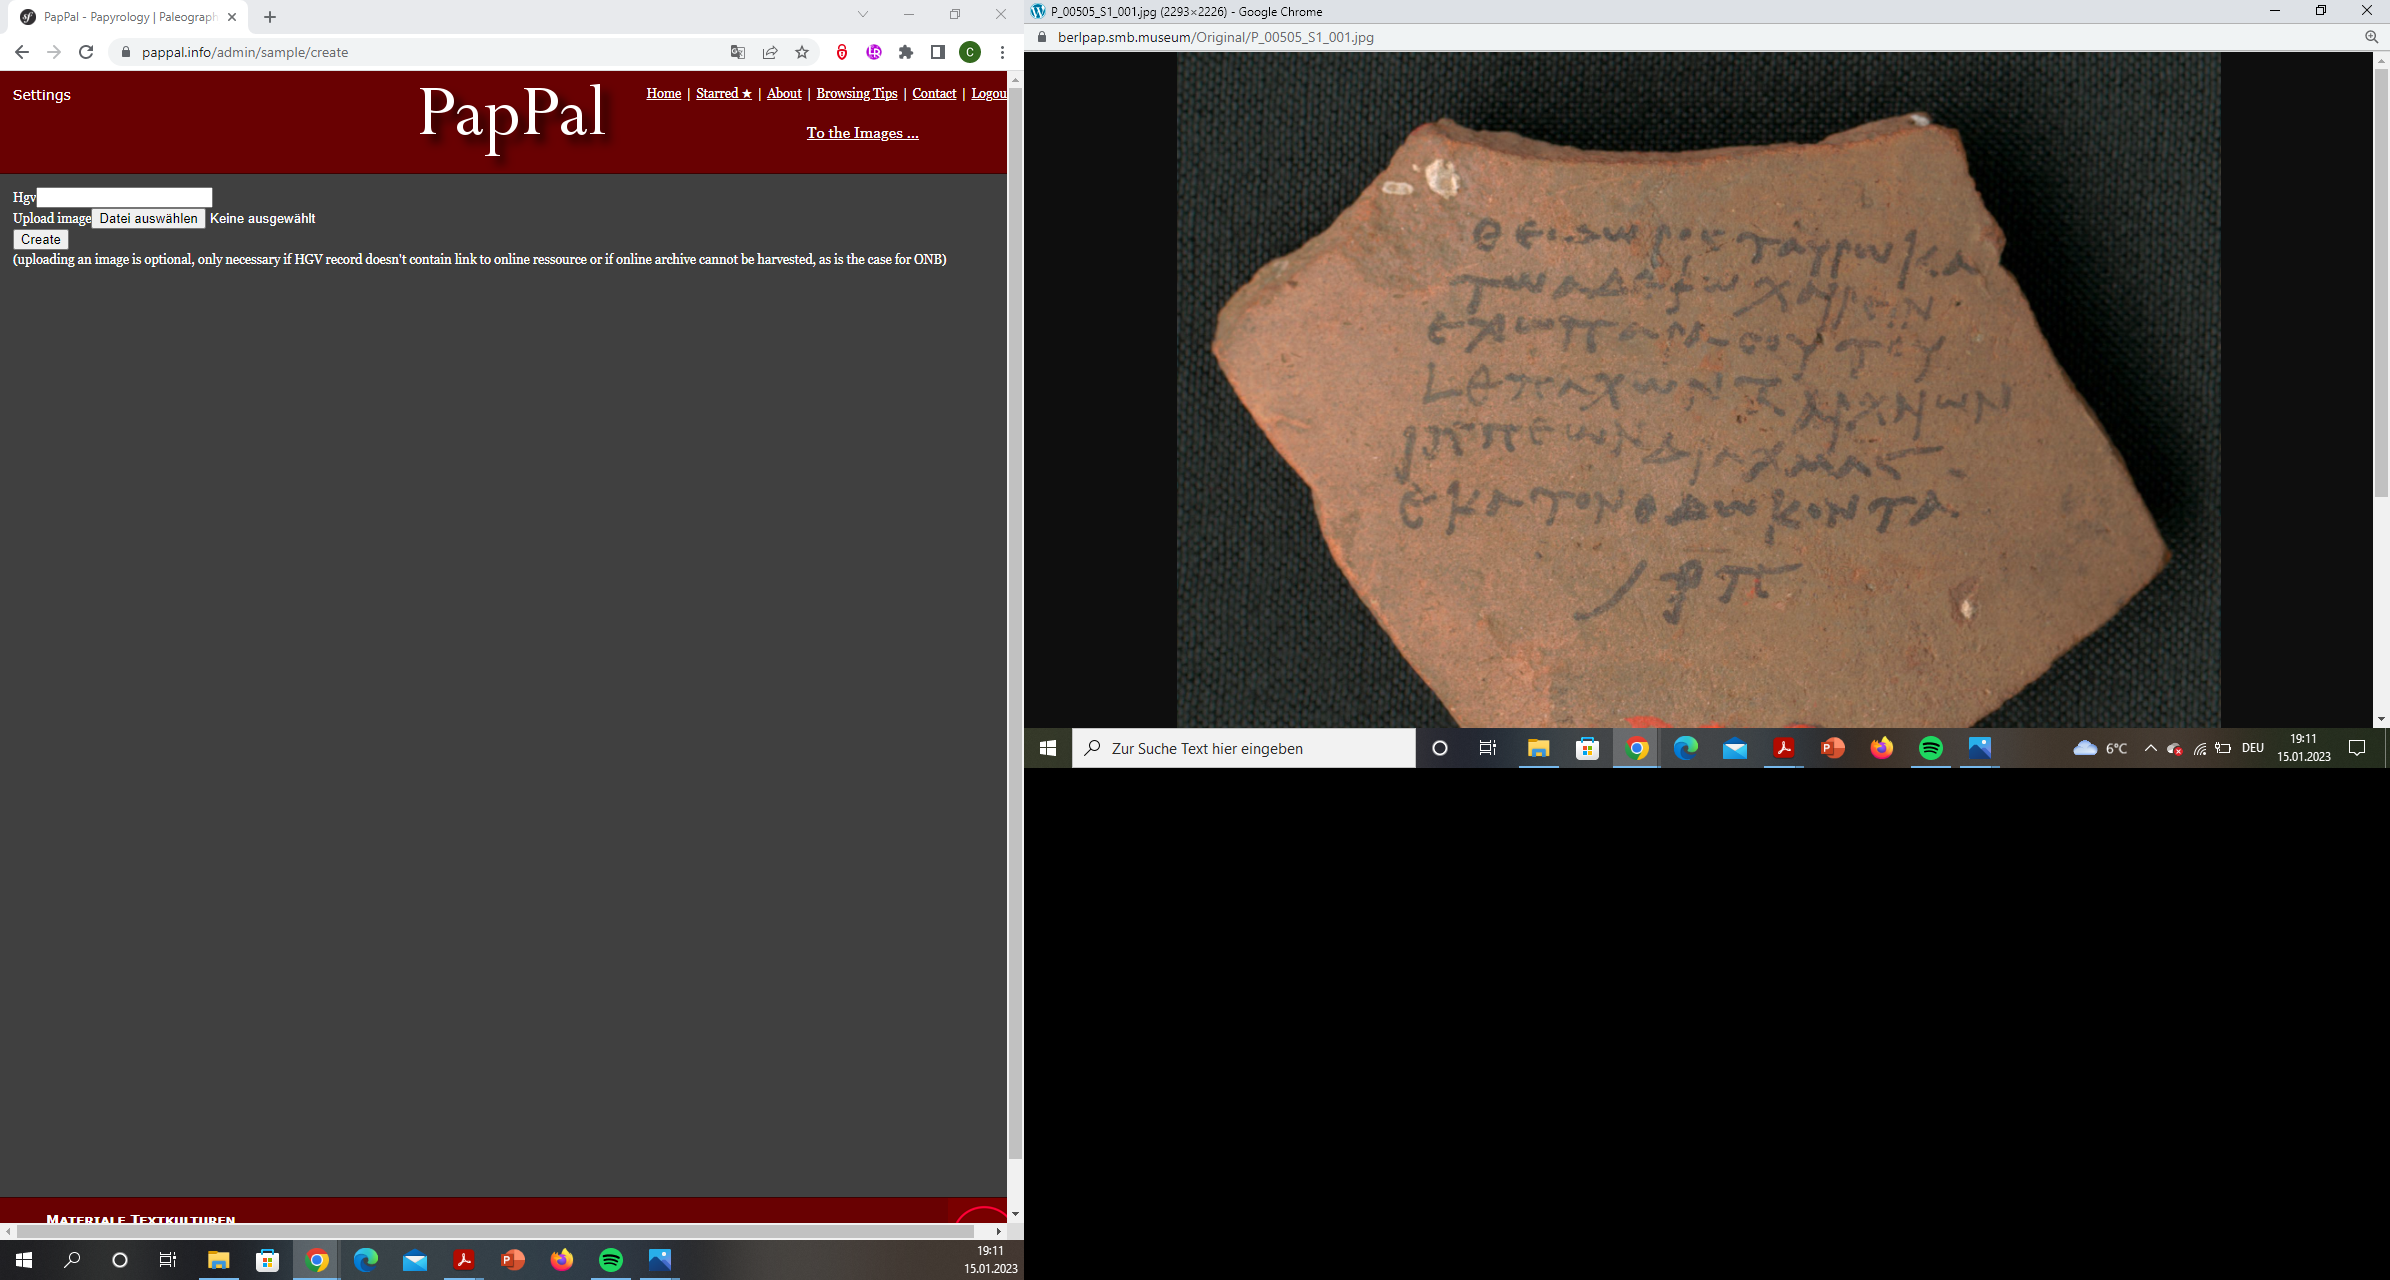 PapPal - Papyrology | Paleograph
pappal.info/admin/sample/create
Settings
PapPal
Home | Starred ★ | About | Browsing Tips | Contact | Logou
To the Images ...
Hgv
Upload image Datei auswählen Keine ausgewählt
Create
(uploading an image is optional, only necessary if HGV record doesn't contain link to online ressource or if online archive cannot be harvested, as is the case for ONB)
MATERIALE TEXTKULTUREN
19:11
15.01.2023
P_00505_S1_001.jpg (2293×2226) - Google Chrome
berlpap.smb.museum/Original/P_00505_S1_001.jpg
ταυρου
τω αδελφω χαιρειν
εχω παρα σου του
L θ παχων
δραχμας
εκατον ογδωκοντα
/ ρπ
Zur Suche Text hier eingeben
6°C
DEU
19:11
15.01.2023